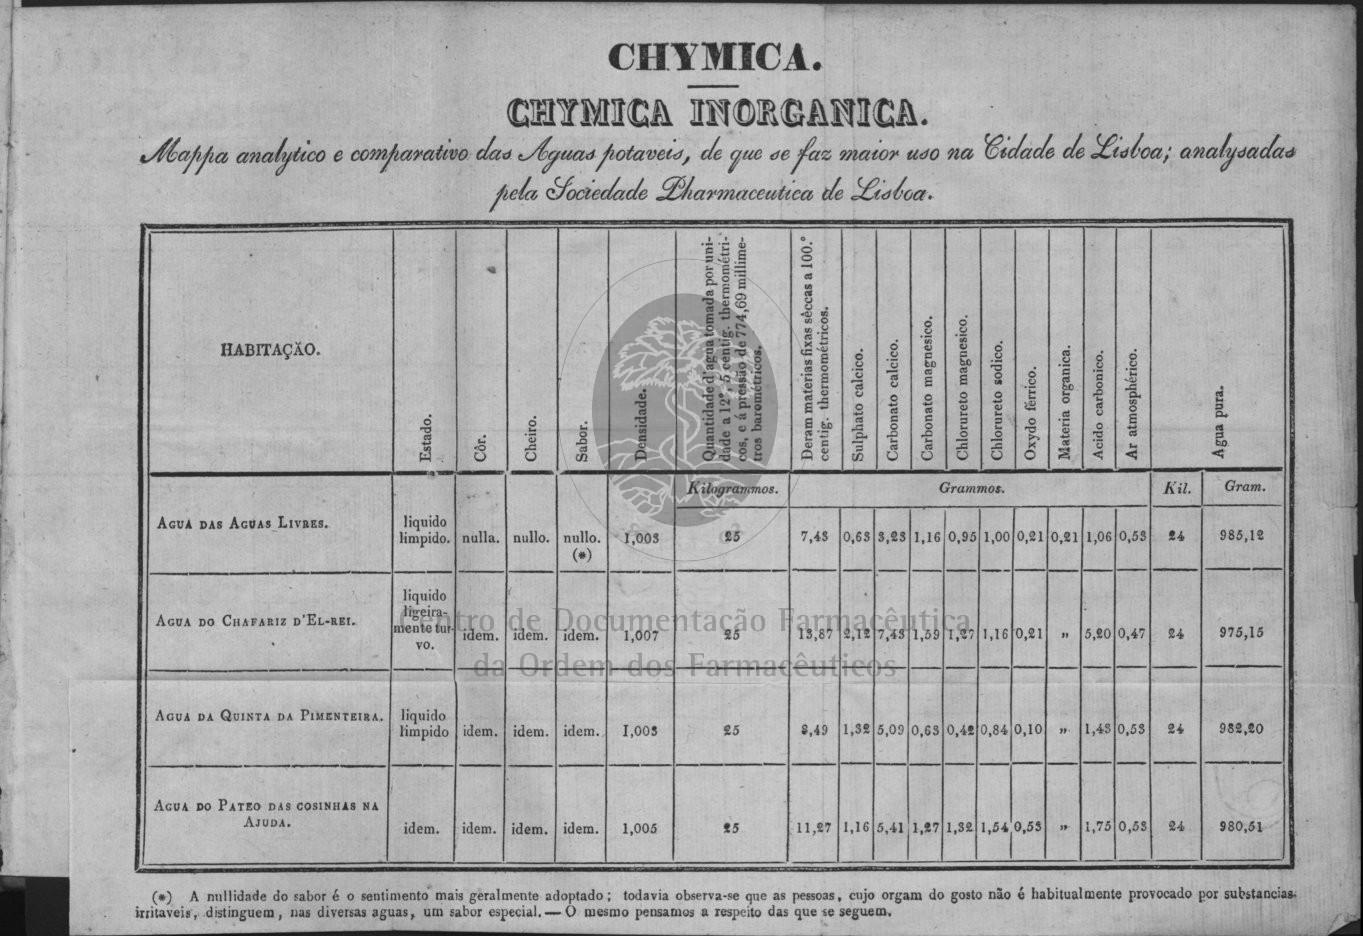 CHYMICA.
CHYMICA INORGANICA.
Mappa analytico e comparativo das Aguas potaveis, de que se faz maior uso na Cidade de Lisboa; analysadas
pela Sociedade Pharmaceutica de Lisboa.
HABITAÇÃO.
Estado.
Côr.
Cheiro.
Sabor.
Densidade.
Quantidade d'agua tomada por uni-
dade a 12°, 5 centig. thermométri-
cos, e á pressão de 774,69 millime-
tros barométricos.
Deram materias fixas sêccas a 100.°
centig. thermométricos.
Sulphato calcico.
Carbonato calcico.
Carbonato magnesico.
Chlorureto magnesico.
Chlorureto sodico.
Oxydo férrico.
Materia organica.
Acido carbonico.
Ar atmosphérico.
Agua pura.
Kilogrammos. Grammos. Kil. Gram.
AGUA DAS AGUAS LIVRES. liquido
limpido. nulla. nullo. nullo. 1,003 25 7,43 0,63 3,23 1,16 0,95 1,00 0,21 0,21 1,06 0,53 24 985,12
(*)
AGUA DO CHAFARIZ D'EL-REI. liquido
ligeira-
mente tur-
vo. idem. idem. idem. 1,007 25 13,87 2,12 7,43 1,59 1,27 1,16 0,21 „ 5,20 0,47 24 975,15
Centro de Documentação Farmacêutica
da Ordem dos Farmacêuticos
AGUA DA QUINTA DA PIMENTEIRA. liquido
limpido idem. idem. idem. 1,003 25 8,49 1,32 5,09 0,63 0,42 0,84 0,10 „ 1,43 0,53 24 982,20
AGUA DO PATEO DAS COSINHAS NA
AJUDA. idem. idem. idem. idem. 1,005 25 11,27 1,16 5,41 1,27 1,32 1,54 0,53 „ 1,75 0,53 24 980,51
(*) A nullidade do sabor é o sentimento mais geralmente adoptado; todavia observa-se que as pessoas, cujo orgam do gosto não é habitualmente provocado por substancias
irritaveis, distinguem, nas diversas aguas, um sabor especial. — O mesmo pensamos a respeito das que se seguem.